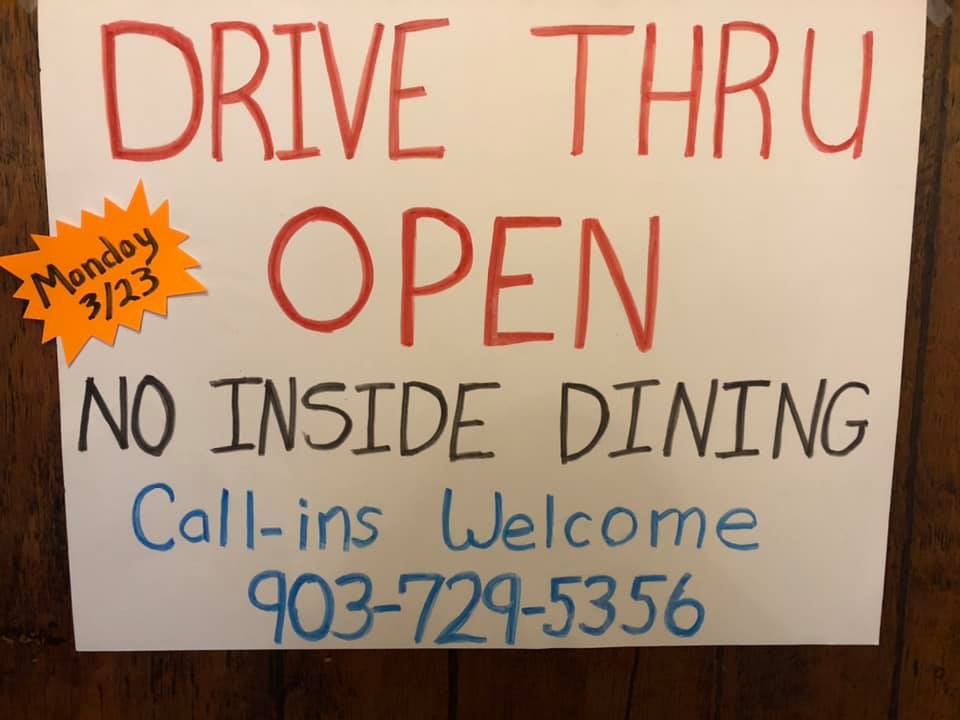 DRIVE THRU
OPEN
Monday
3/23
NO INSIDE DINING
Call-ins Welcome
903-729-5356